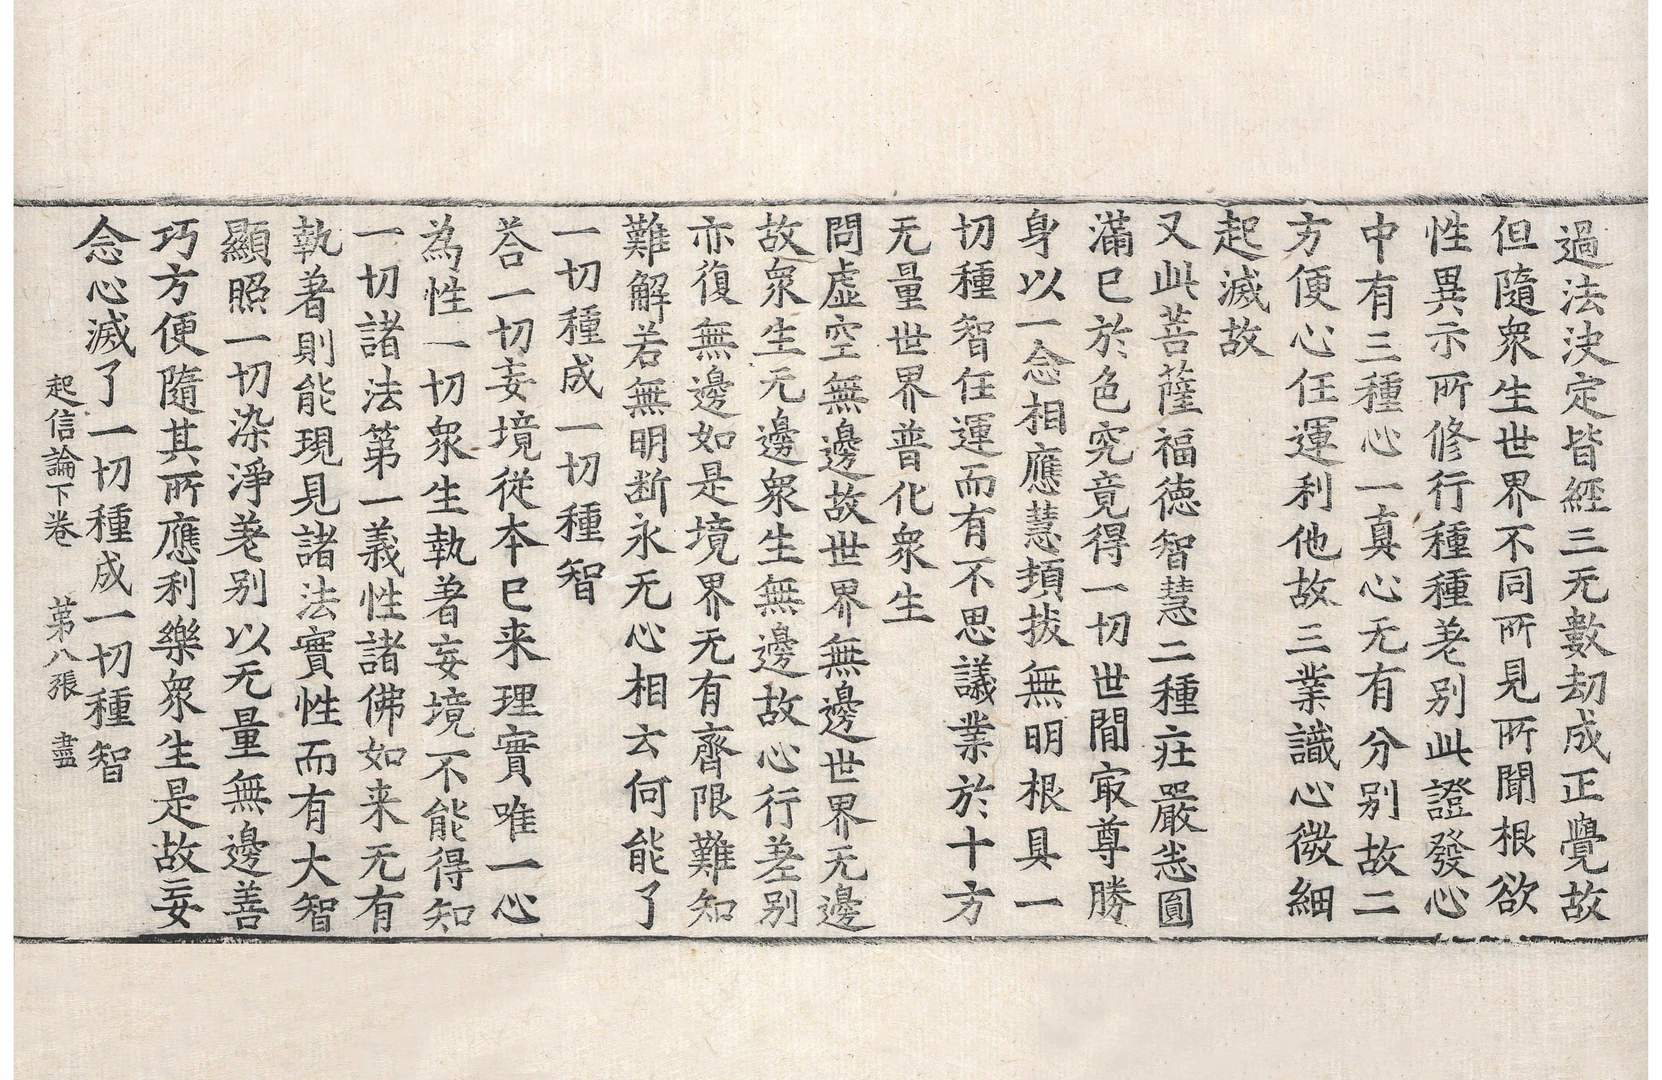 過法決定皆經三无數劫成正覺故
但隨衆生世界不同所見所聞根欲
性異示所修行種種差別此證發心
中有三種心一真心无有分別故二
方便心任運利他故三業識心微細
起滅故
又此菩薩福德智慧二種庄嚴悉圓
滿已於色究竟得一切世間㝡尊勝
身以一念相應慧頓拔無明根具一
切種智任運而有不思議業於十方
无量世界普化衆生
問虛空無邊故世界無邊世界无邊
故衆生无邊衆生無邊故心行差別
亦復無邊如是境界无有齊限難知
難解若無明断永无心相云何能了
一切種成一切種智
荅一切妄境從本已来理實唯一心
為性一切衆生執著妄境不能得知
一切諸法第一義性諸佛如来无有
執著則能現見諸法實性而有大智
顯照一切染淨差別以无量無邊善
巧方便隨其所應利樂衆生是故妄
念心滅了一切種成一切種智
起信論下卷 苐八張 盡